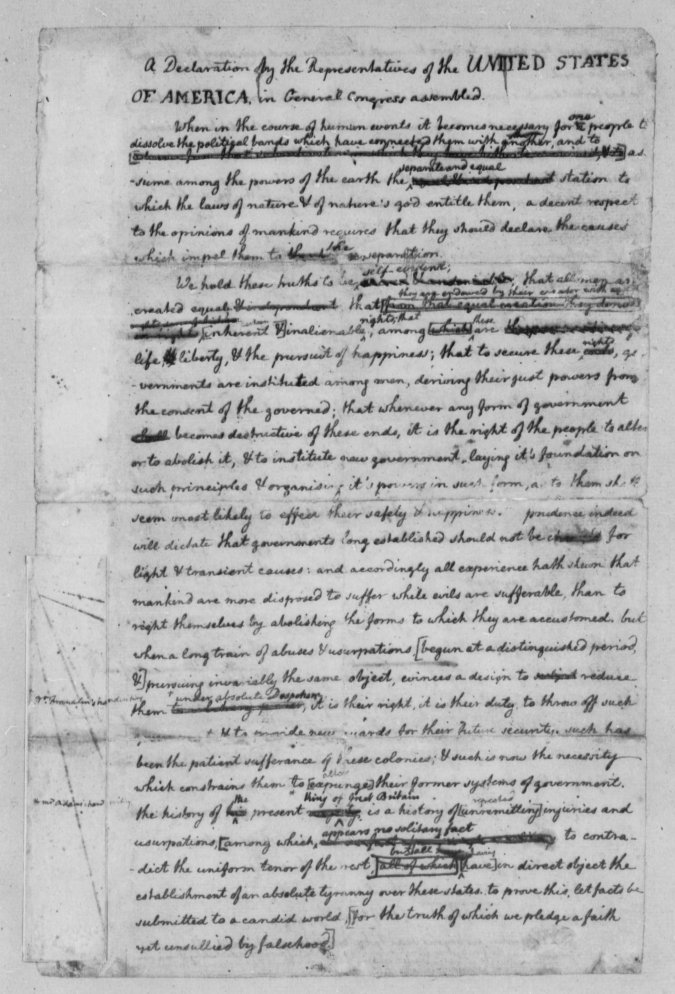 A Declaration by the Representatives of the UNITED STATES
OF AMERICA, in General Congress assembled.
When in the course of human events it becomes necessary for one people to
dissolve the political bands which have connected them with another, and to
as
separate and equal
-sume among the powers of the earth the station to
which the laws of nature & of nature's god entitle them, a decent respect
to the opinions of mankind requires that they should declare the causes
which impel them to the separation.
self-evident;
We hold these truths to be that all men are
they are endowed by their creator with
created equal & independant that [from that equal creation they derive
rights; that these
[inherent &] inalienable, among [which] are
rights
life, liberty, & the pursuit of happiness; that to secure these ends, go
-vernments are instituted among men, deriving their just powers from
the consent of the governed; that whenever any form of government
shall becomes destructive of these ends, it is the right of the people to alter
or to abolish it, & to institute new government, laying it's foundation on
such principles & organising it's powers in such form, as to them shall
seem most likely to effect their safety & happiness. prudence indeed
will dictate that governments long established should not be changed for
light & transient causes: and accordingly all experience hath shewn that
mankind are more disposed to suffer while evils are sufferable, than to
right themselves by abolishing the forms to which they are accustomed. but
when a long train of abuses & usurpations [begun at a distinguished period,
&] pursuing invariably the same object, evinces a design to reduce
Dr. Franklin's handwriting
under absolute Despotism
them it is their right, it is their duty, to throw off such
& to provide new guards for their future security. such has
been the patient sufferance of these colonies; & such is now the necessity
alter
which constrains them to [expunge] their former systems of government.
Mr. Adams' hand writing
the King of Great Britain repeated
the history of his present is a history of [unremitting] injuries and
appears no solitary fact
usurpations, [among which, to contra-
but all having
-dict the uniform tenor of the rest, [all of which] [have] in direct object the
establishment of an absolute tyranny over these states. to prove this, let facts be
submitted to a candid world, [for the truth of which we pledge a faith
yet unsullied by falsehood]